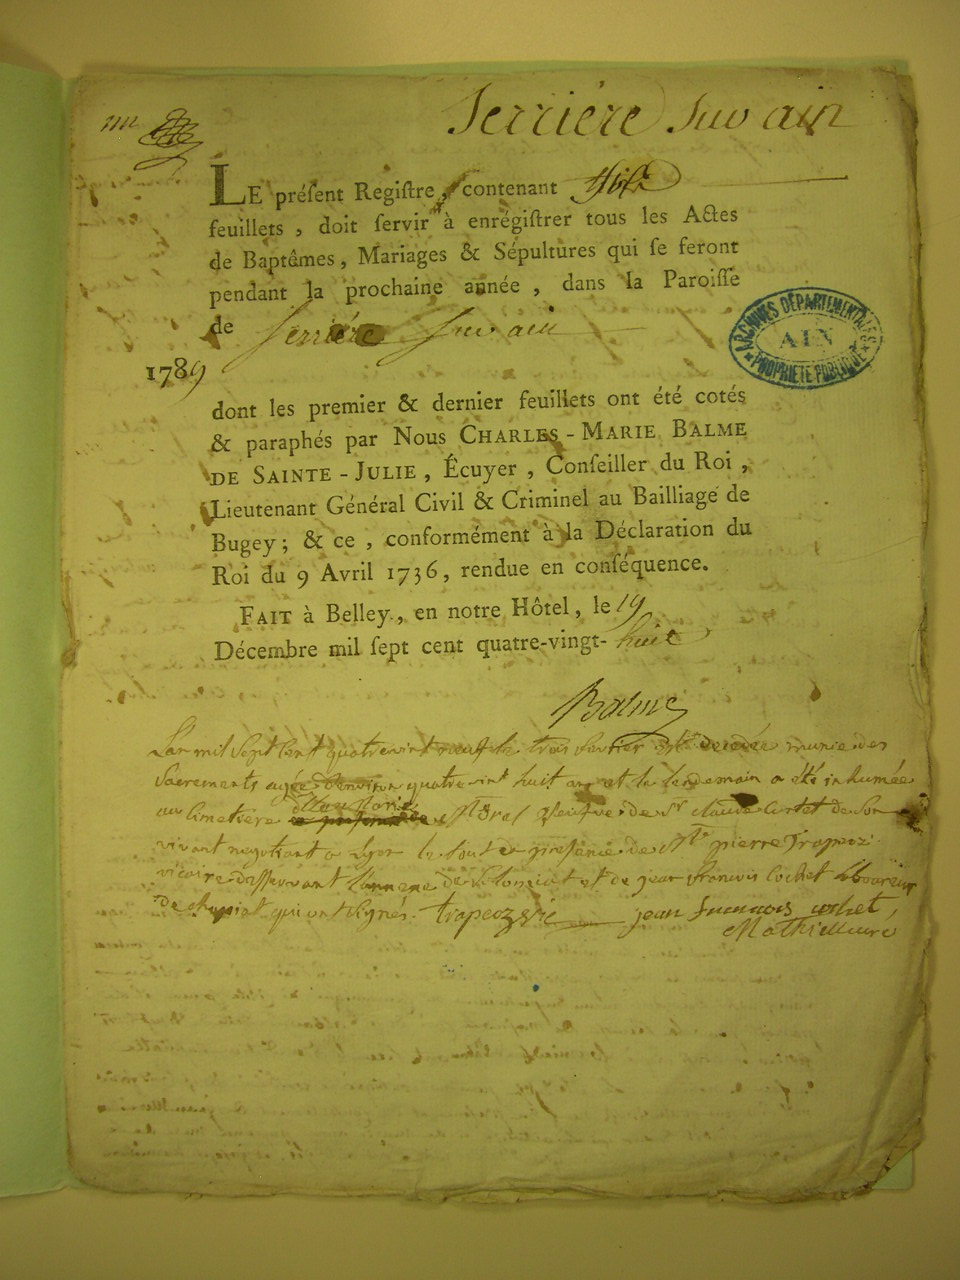 Serriére Sur ain
LE préſent Regiſtre, contenant
feuillets, doit ſervir à enrégiſtrer tous les Actes
de Baptâmes, Mariages & Sépultures qui ſe feront
pendant la prochaine année, dans la Paroiſſe
de Serriére Sur ain
1789
dont les premier & dernier feuillets ont été cotés
& paraphés par Nous CHARLES-MARIE BALME
DE SAINTE-JULIE, Écuyer, Conſeiller du Roi,
Lieutenant Général Civil & Criminel au Bailliage de
Bugey; & ce, conformément à la Déclaration du
Roi du 9 Avril 1736, rendue en conſéquence.
FAIT à Belley, en notre Hôtel, le 19
Décembre mil ſept cent quatre-vingt-huit
Balme
ARCHIVES DÉPARTEMENTALES
AIN
PROPRIÉTÉ PUBLIQUE
L'an mil Sept Cent quatrevint neuf le trois fevrier est decedée munie des
Sacrements agée d'environ quatre vint huit ans et le lendemain a été inhumée
au Cimetiere veuve de Sr claude de Son
vivant negotiant a Lyon le tout en presence de Mre pierre Trapeoz
vicaire desservant l'annexe de et de jean francois Cochet laboureur
De qui ont Signés. trapeoz vic jean francois cochet,
Mathieu curé